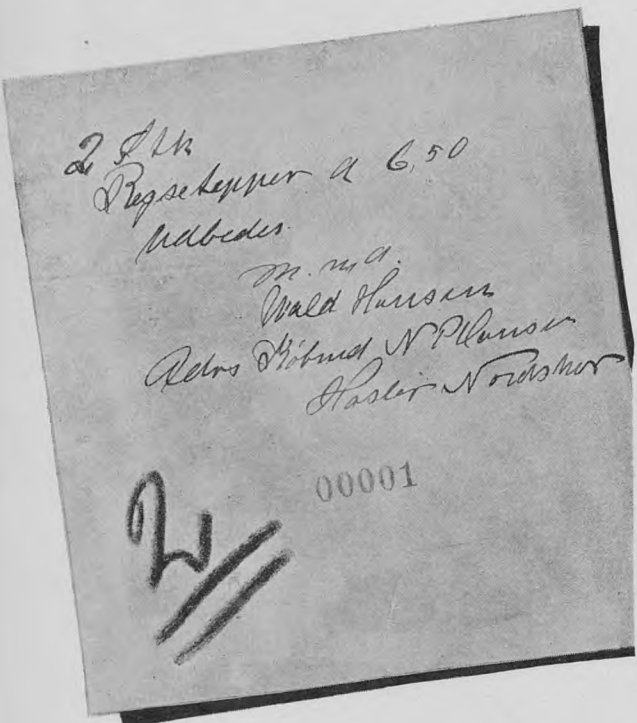 2 Stk
Regsetepper a 6,50
Udbedes.
m. m. a.
Wald Hansen
Adrs Købmd N P Hansen
Hasler Nordskov
00001
2